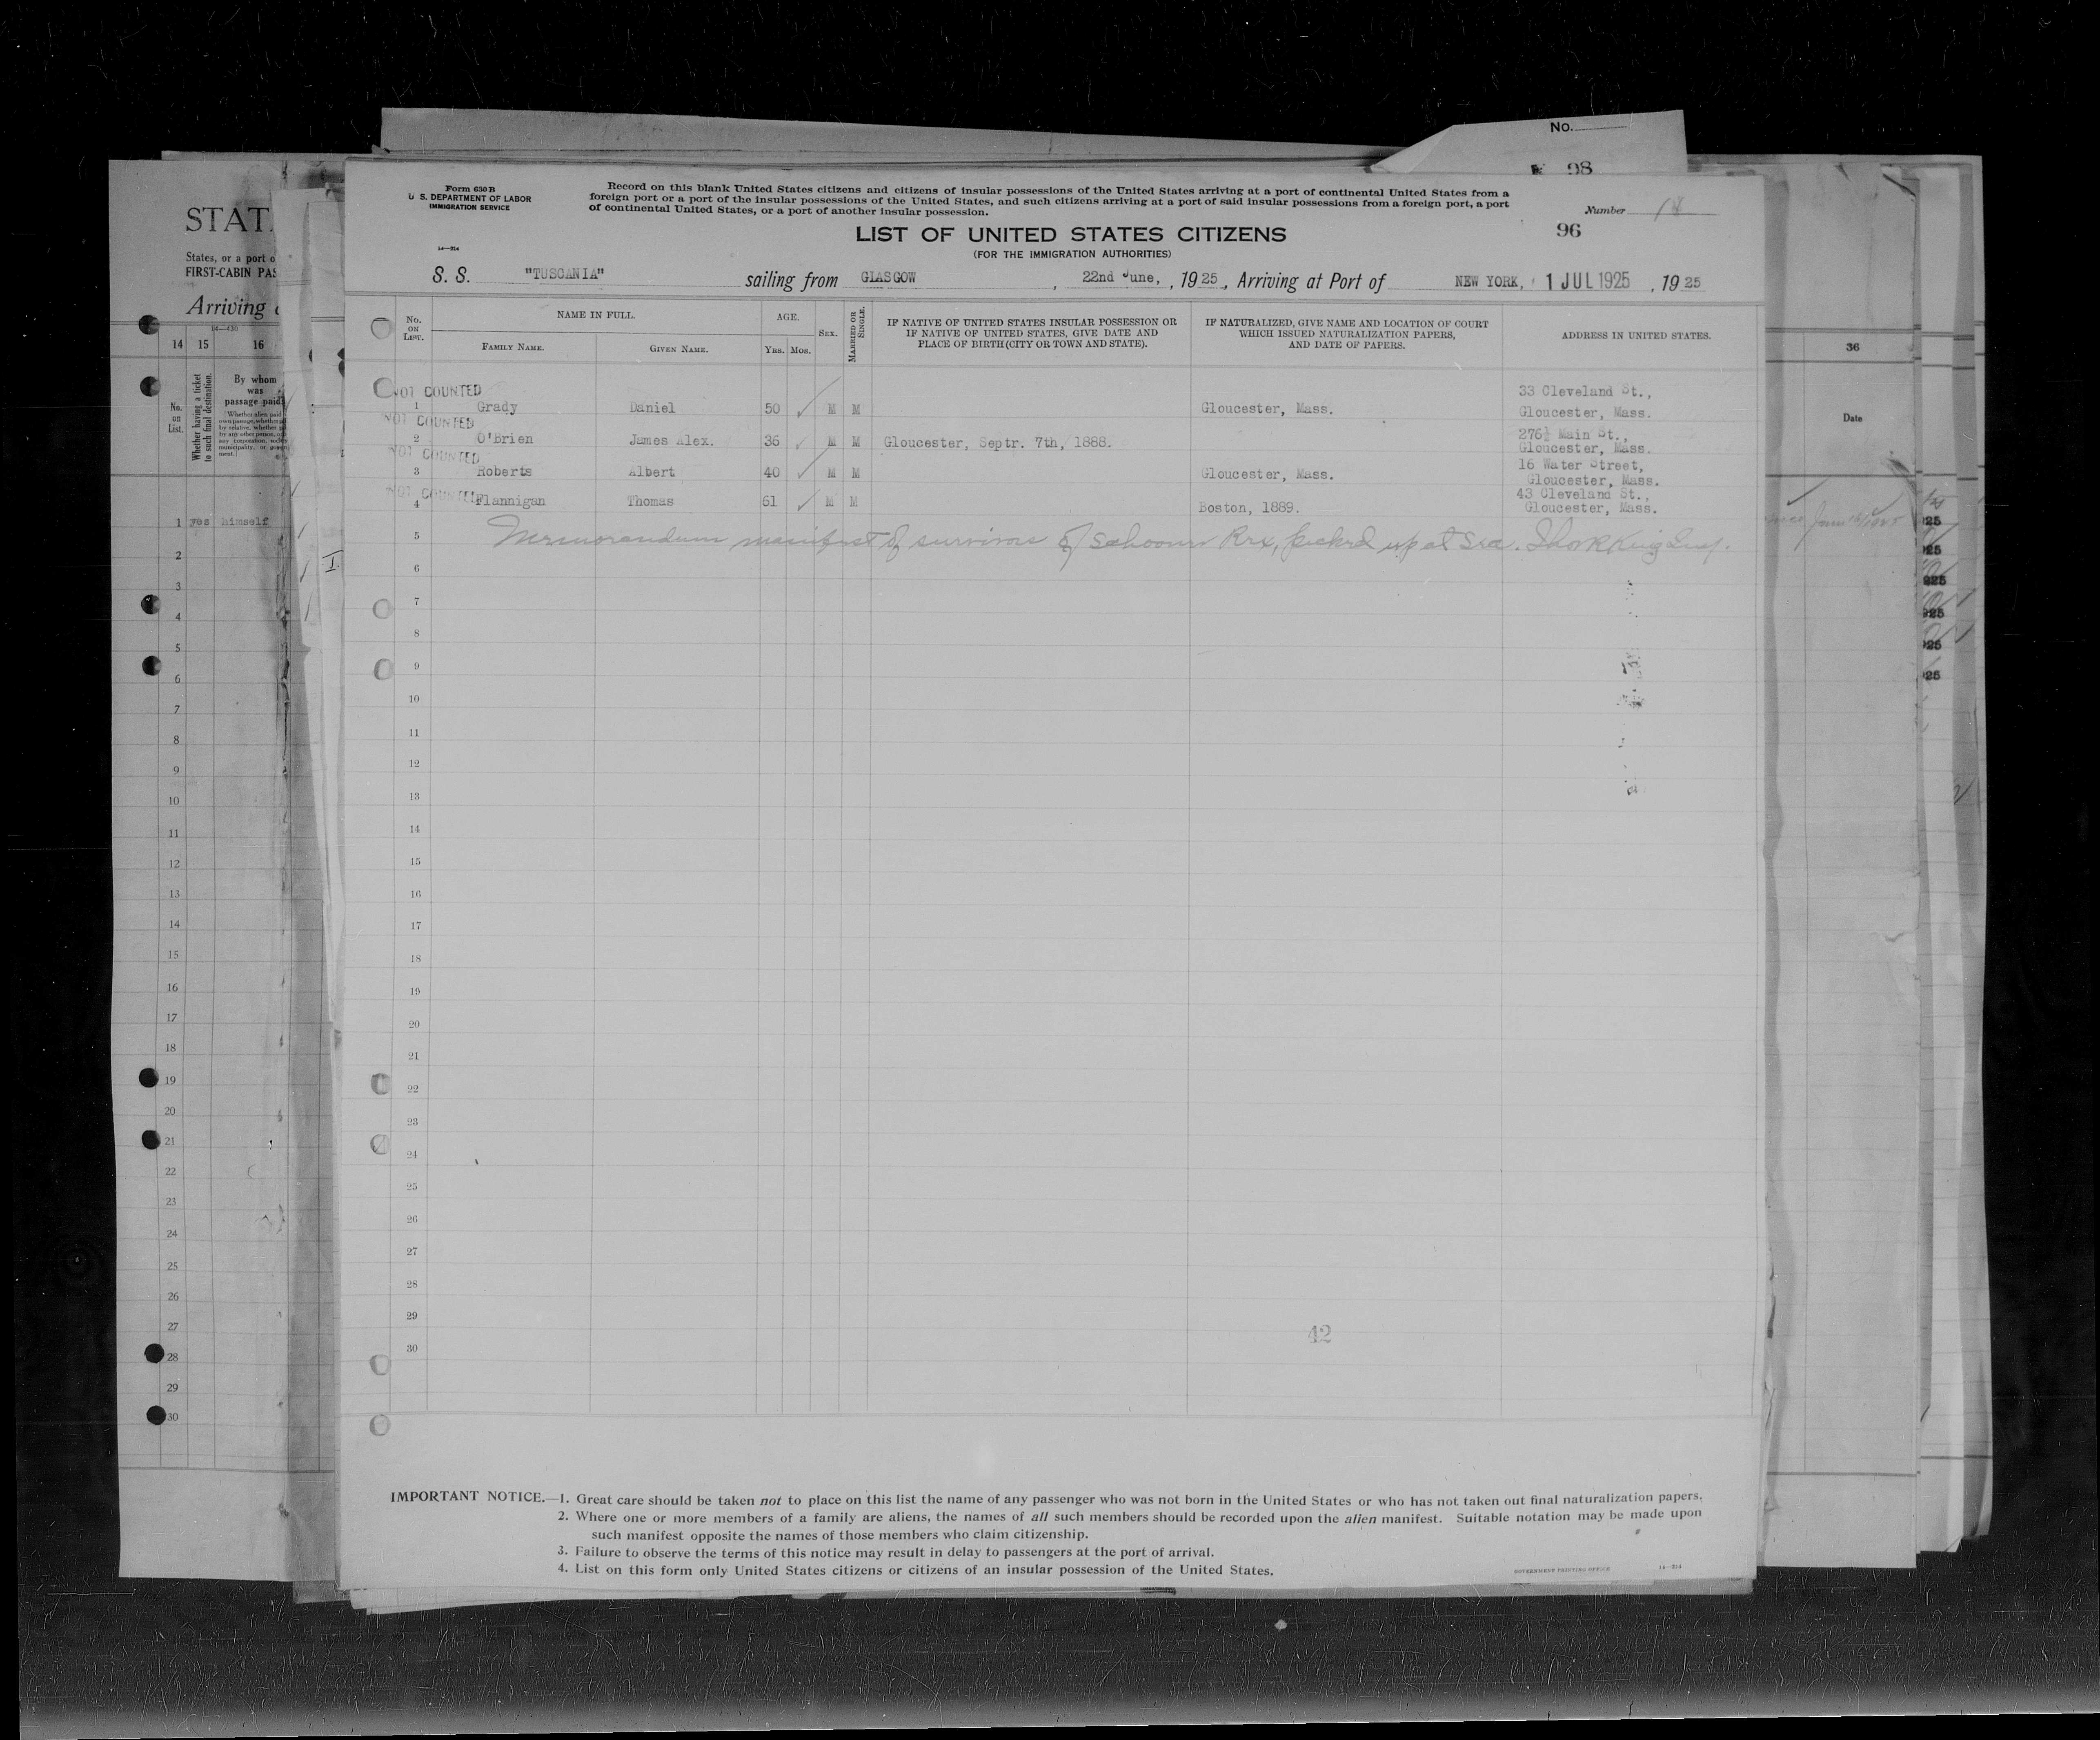 No.
98
STAT
States, or a port o
FIRST-CABIN PAS
Arriving
14 15 16
No. on List.
Whether having a ticket to such final destination.
By whom was passage paid
1 yes himself
2
3
4
5
6
7
8
9
10
11
12
13
14
15
16
17
18
19
20
21
22
23
24
25
26
27
28
29
30
Form 630 B
U. S. DEPARTMENT OF LABOR
IMMIGRATION SERVICE
14—314
Record on this blank United States citizens and citizens of insular possessions of the United States arriving at a port of continental United States from a
foreign port or a port of the insular possessions of the United States, and such citizens arriving at a port of said insular possessions from a foreign port, a port
of continental United States, or a port of another insular possession.
Number
96
LIST OF UNITED STATES CITIZENS
(FOR THE IMMIGRATION AUTHORITIES)
S. S. "TUSCANIA" sailing from GLASGOW, 22nd June, , 1925, Arriving at Port of NEW YORK, 1 JUL 1925 , 1925
No. ON LIST.
NAME IN FULL.
FAMILY NAME. GIVEN NAME.
AGE.
YRS. MOS.
SEX.
MARRIED OR SINGLE.
IF NATIVE OF UNITED STATES INSULAR POSSESSION OR
IF NATIVE OF UNITED STATES, GIVE DATE AND
PLACE OF BIRTH (CITY OR TOWN AND STATE).
IF NATURALIZED, GIVE NAME AND LOCATION OF COURT
WHICH ISSUED NATURALIZATION PAPERS,
AND DATE OF PAPERS.
ADDRESS IN UNITED STATES.
NOT COUNTED
33 Cleveland St.,
1 Grady Daniel 50 M M Gloucester, Mass. Gloucester, Mass.
NOT COUNTED
276½ Main St.,
2 O'Brien James Alex. 36 M M Gloucester, Septr. 7th, 1888. Gloucester, Mass.
NOT COUNTED
16 Water Street,
3 Roberts Albert 40 M M Gloucester, Mass. Gloucester, Mass.
NOT COUNTED
43 Cleveland St.,
4 Flannigan Thomas 61 M M Boston, 1889. Gloucester, Mass.
5 Memorandum manifest of survivors of schooner Rex, picked up at sea.
6
7
8
9
10
11
12
13
14
15
16
17
18
19
20
21
22
23
24
25
26
27
28
29
30
42
IMPORTANT NOTICE.—1. Great care should be taken not to place on this list the name of any passenger who was not born in the United States or who has not taken out final naturalization papers.
2. Where one or more members of a family are aliens, the names of all such members should be recorded upon the alien manifest. Suitable notation may be made upon
such manifest opposite the names of those members who claim citizenship.
3. Failure to observe the terms of this notice may result in delay to passengers at the port of arrival.
4. List on this form only United States citizens or citizens of an insular possession of the United States.
GOVERNMENT PRINTING OFFICE
14—314
36
Date